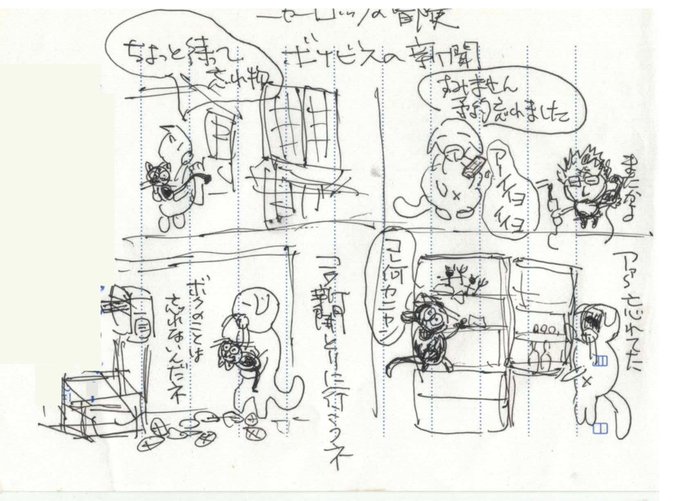 の冒険
の新聞
ちょっと待って
忘れ物
すみません
予約忘れました
アイイヨ
イイヨ
またかよ
アァ〜忘れてた
コレ何
カニャ
コラ新聞とりに行こうネ
ボクのことは
忘れないんだネ